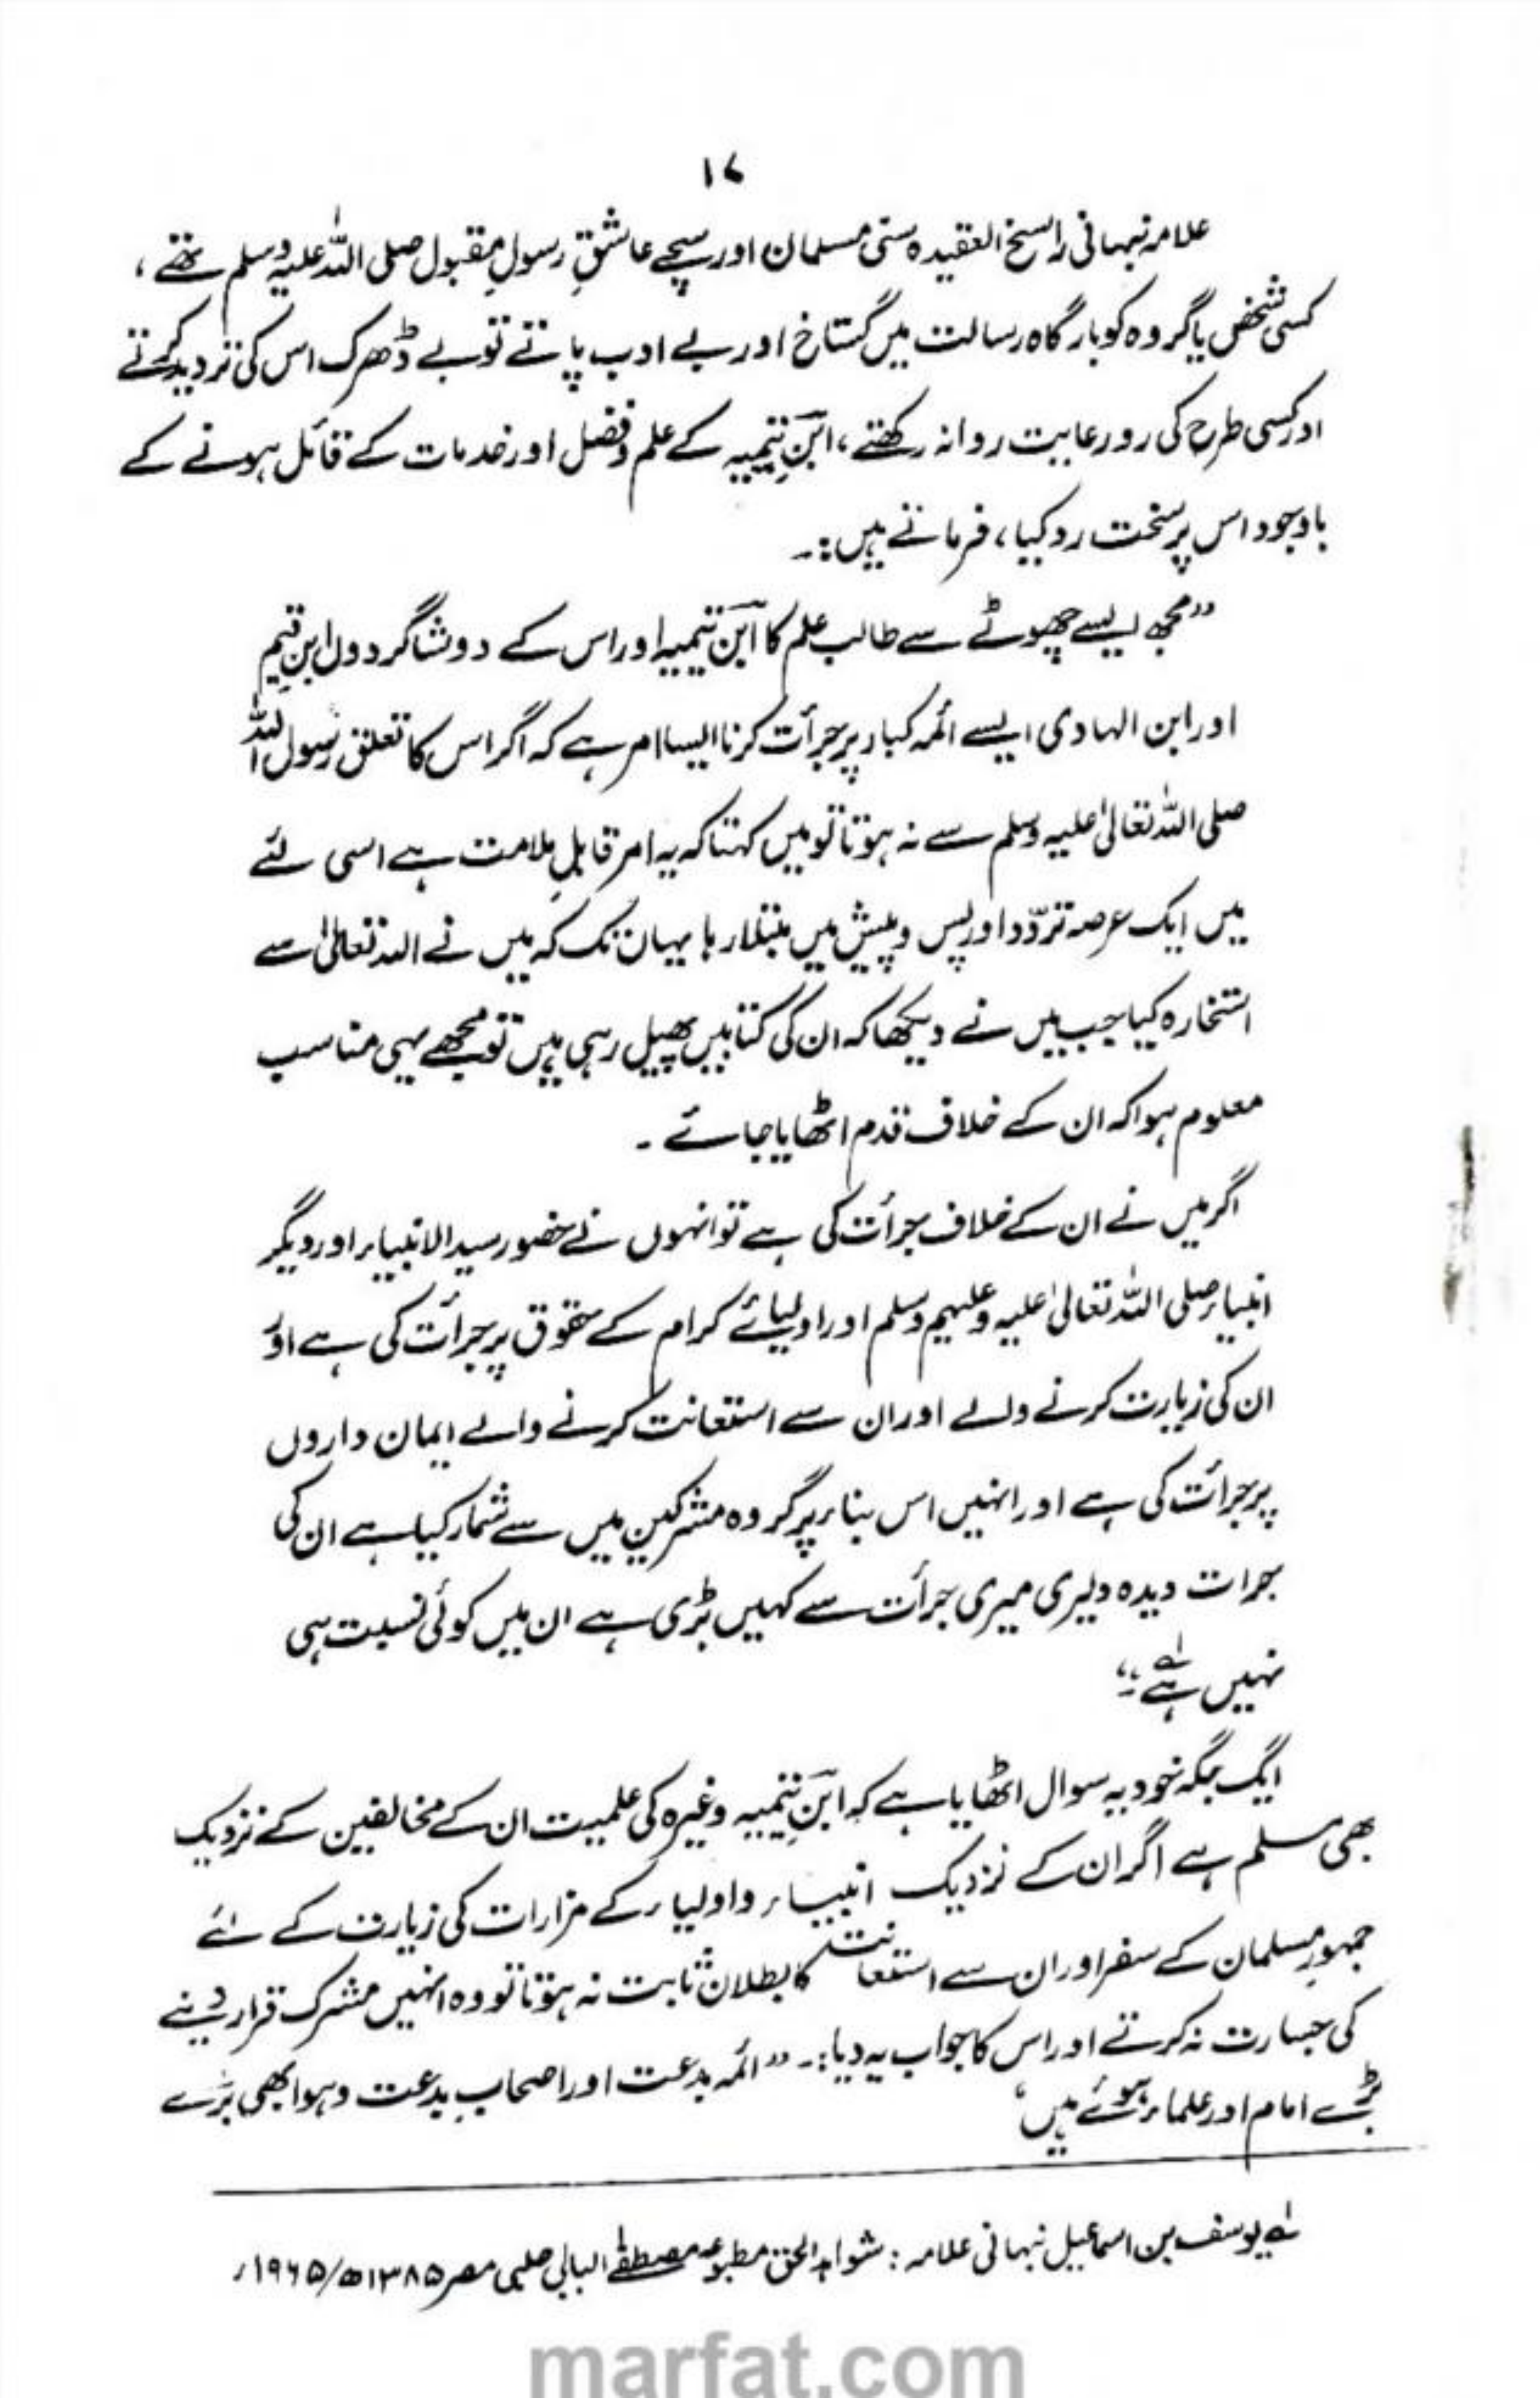 ۱۷
علامہ نبہانی راسخ العقیدہ سنی مسلمان اور سچے عاشقِ رسولِ مقبول صلی اللہ علیہ وسلم تھے ،
کسی شخص یا گروہ کو بارگاہ رسالت میں گستاخ اور بے ادب پاتے تو بے دھڑک اس کی تردید کرتے
اور کسی طرح کی رو رعایت روا نہ رکھتے ، ابنِ تیمیہ کے علم و فضل اور خدمات کے قائل ہونے کے
باوجود اس پر سخت رد کیا ، فرماتے ہیں :۔
”مجھ ایسے چھوٹے سے طالب علم کا ابن تیمیہ اور اس کے دو شاگردوں ابنِ قیم
اور ابن الہادی ایسے ائمہ کبار پر جرأت کرنا ایسا امر ہے کہ اگر اس کا تعلق رسول اللہ
صلی اللہ تعالیٰ علیہ وسلم سے نہ ہوتا تو میں کہتا کہ یہ امر قابلِ ملامت ہے اسی لئے
میں ایک عرصہ تردّد اور پس و پیش میں مبتلا رہا یہاں تک کہ میں نے اللہ تعالیٰ سے
استخارہ کیا جب میں نے دیکھا کہ ان کی کتابیں پھیل رہی ہیں تو مجھے یہی مناسب
معلوم ہوا کہ ان کے خلاف قدم اٹھایا جائے ۔
اگر میں نے ان کے خلاف جرأت کی ہے تو انہوں نے حضور سید الانبیاء اور دیگر
انبیاء صلی اللہ تعالیٰ علیہ وعلیہم وسلم اور اولیائے کرام کے حقوق پر جرأت کی ہے اور
ان کی زیارت کرنے والے اور ان سے استعانت کرنے والے ایمان داروں
پر جرأت کی ہے اور انہیں اس بناء پر گروہ مشرکین میں سے شمار کیا ہے ان کی
جرات دیدہ دلیری میری جرأت سے کہیں بڑی ہے ان میں کوئی نسبت ہی
نہیں ہے لہ ۔“
ایک جگہ خود یہ سوال اٹھایا ہے کہ ابنِ تیمیہ وغیرہ کی علمیت ان کے مخالفین کے نزدیک
بھی مسلم ہے اگر ان کے نزدیک انبیاء و اولیاء کے مزارات کی زیارت کے لئے
جمہور مسلمان کے سفر اور ان سے استعانت کا بطلان ثابت نہ ہوتا تو وہ انہیں مشرک قرار دینے
کی جسارت نہ کرتے اور اس کا جواب یہ دیا :۔ ”ائمہ بدعت اور اصحابِ بدعت و ہوا بھی بڑے
بڑے امام اور علماء ہوئے ہیں،
لہ یوسف بن اسماعیل نبہانی علامہ : شواہد الحق مطبوعہ مصطفےٰ البابی حلبی مصر ۱۳۸۵ھ/۱۹۶۵ء
marfat.com